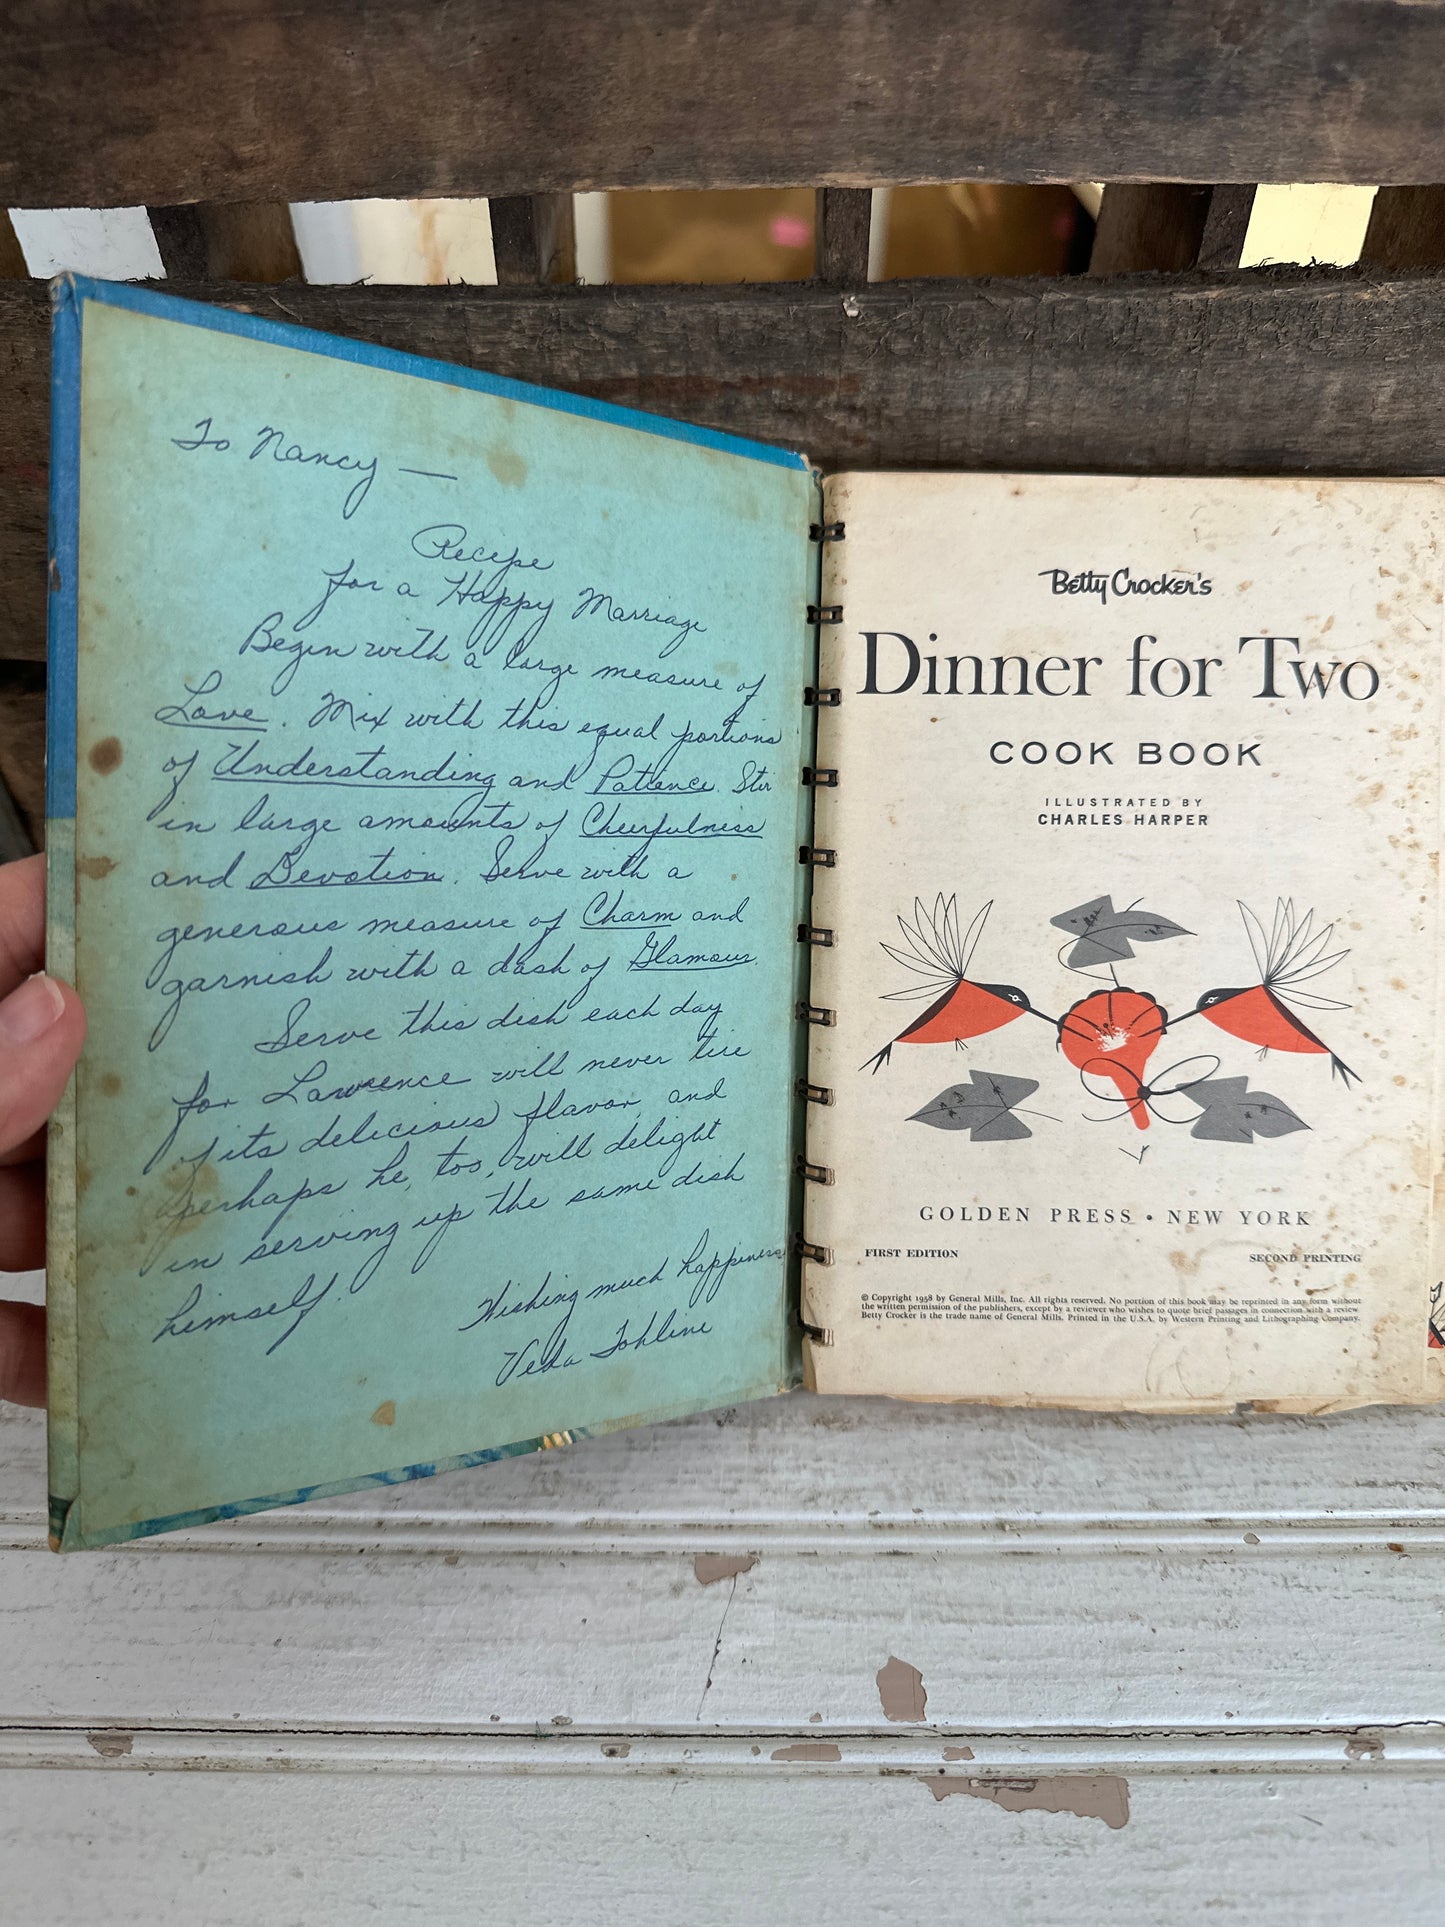 To Nancy —
Recipe
for a Happy Marriage
Begin with a large measure of
Love. Mix with this equal portions
of Understanding and Patience. Stir
in large amounts of Cheerfulness
and Devotion. Serve with a
generous measure of Charm and
garnish with a dash of Glamour.
Serve this dish each day
for Lawrence will never tire
of its delicious flavor, and
perhaps he, too, will delight
in serving up the same dish
himself.
Wishing much happiness
Veda Tohline
Betty Crocker's
Dinner for Two
COOK BOOK
ILLUSTRATED BY
CHARLES HARPER
GOLDEN PRESS • NEW YORK
FIRST EDITION SECOND PRINTING
© Copyright 1958 by General Mills, Inc. All rights reserved. No portion of this book may be reprinted in any form without
the written permission of the publishers, except by a reviewer who wishes to quote brief passages in connection with a review
Betty Crocker is the trade name of General Mills. Printed in the U.S.A. by Western Printing and Lithographing Company.